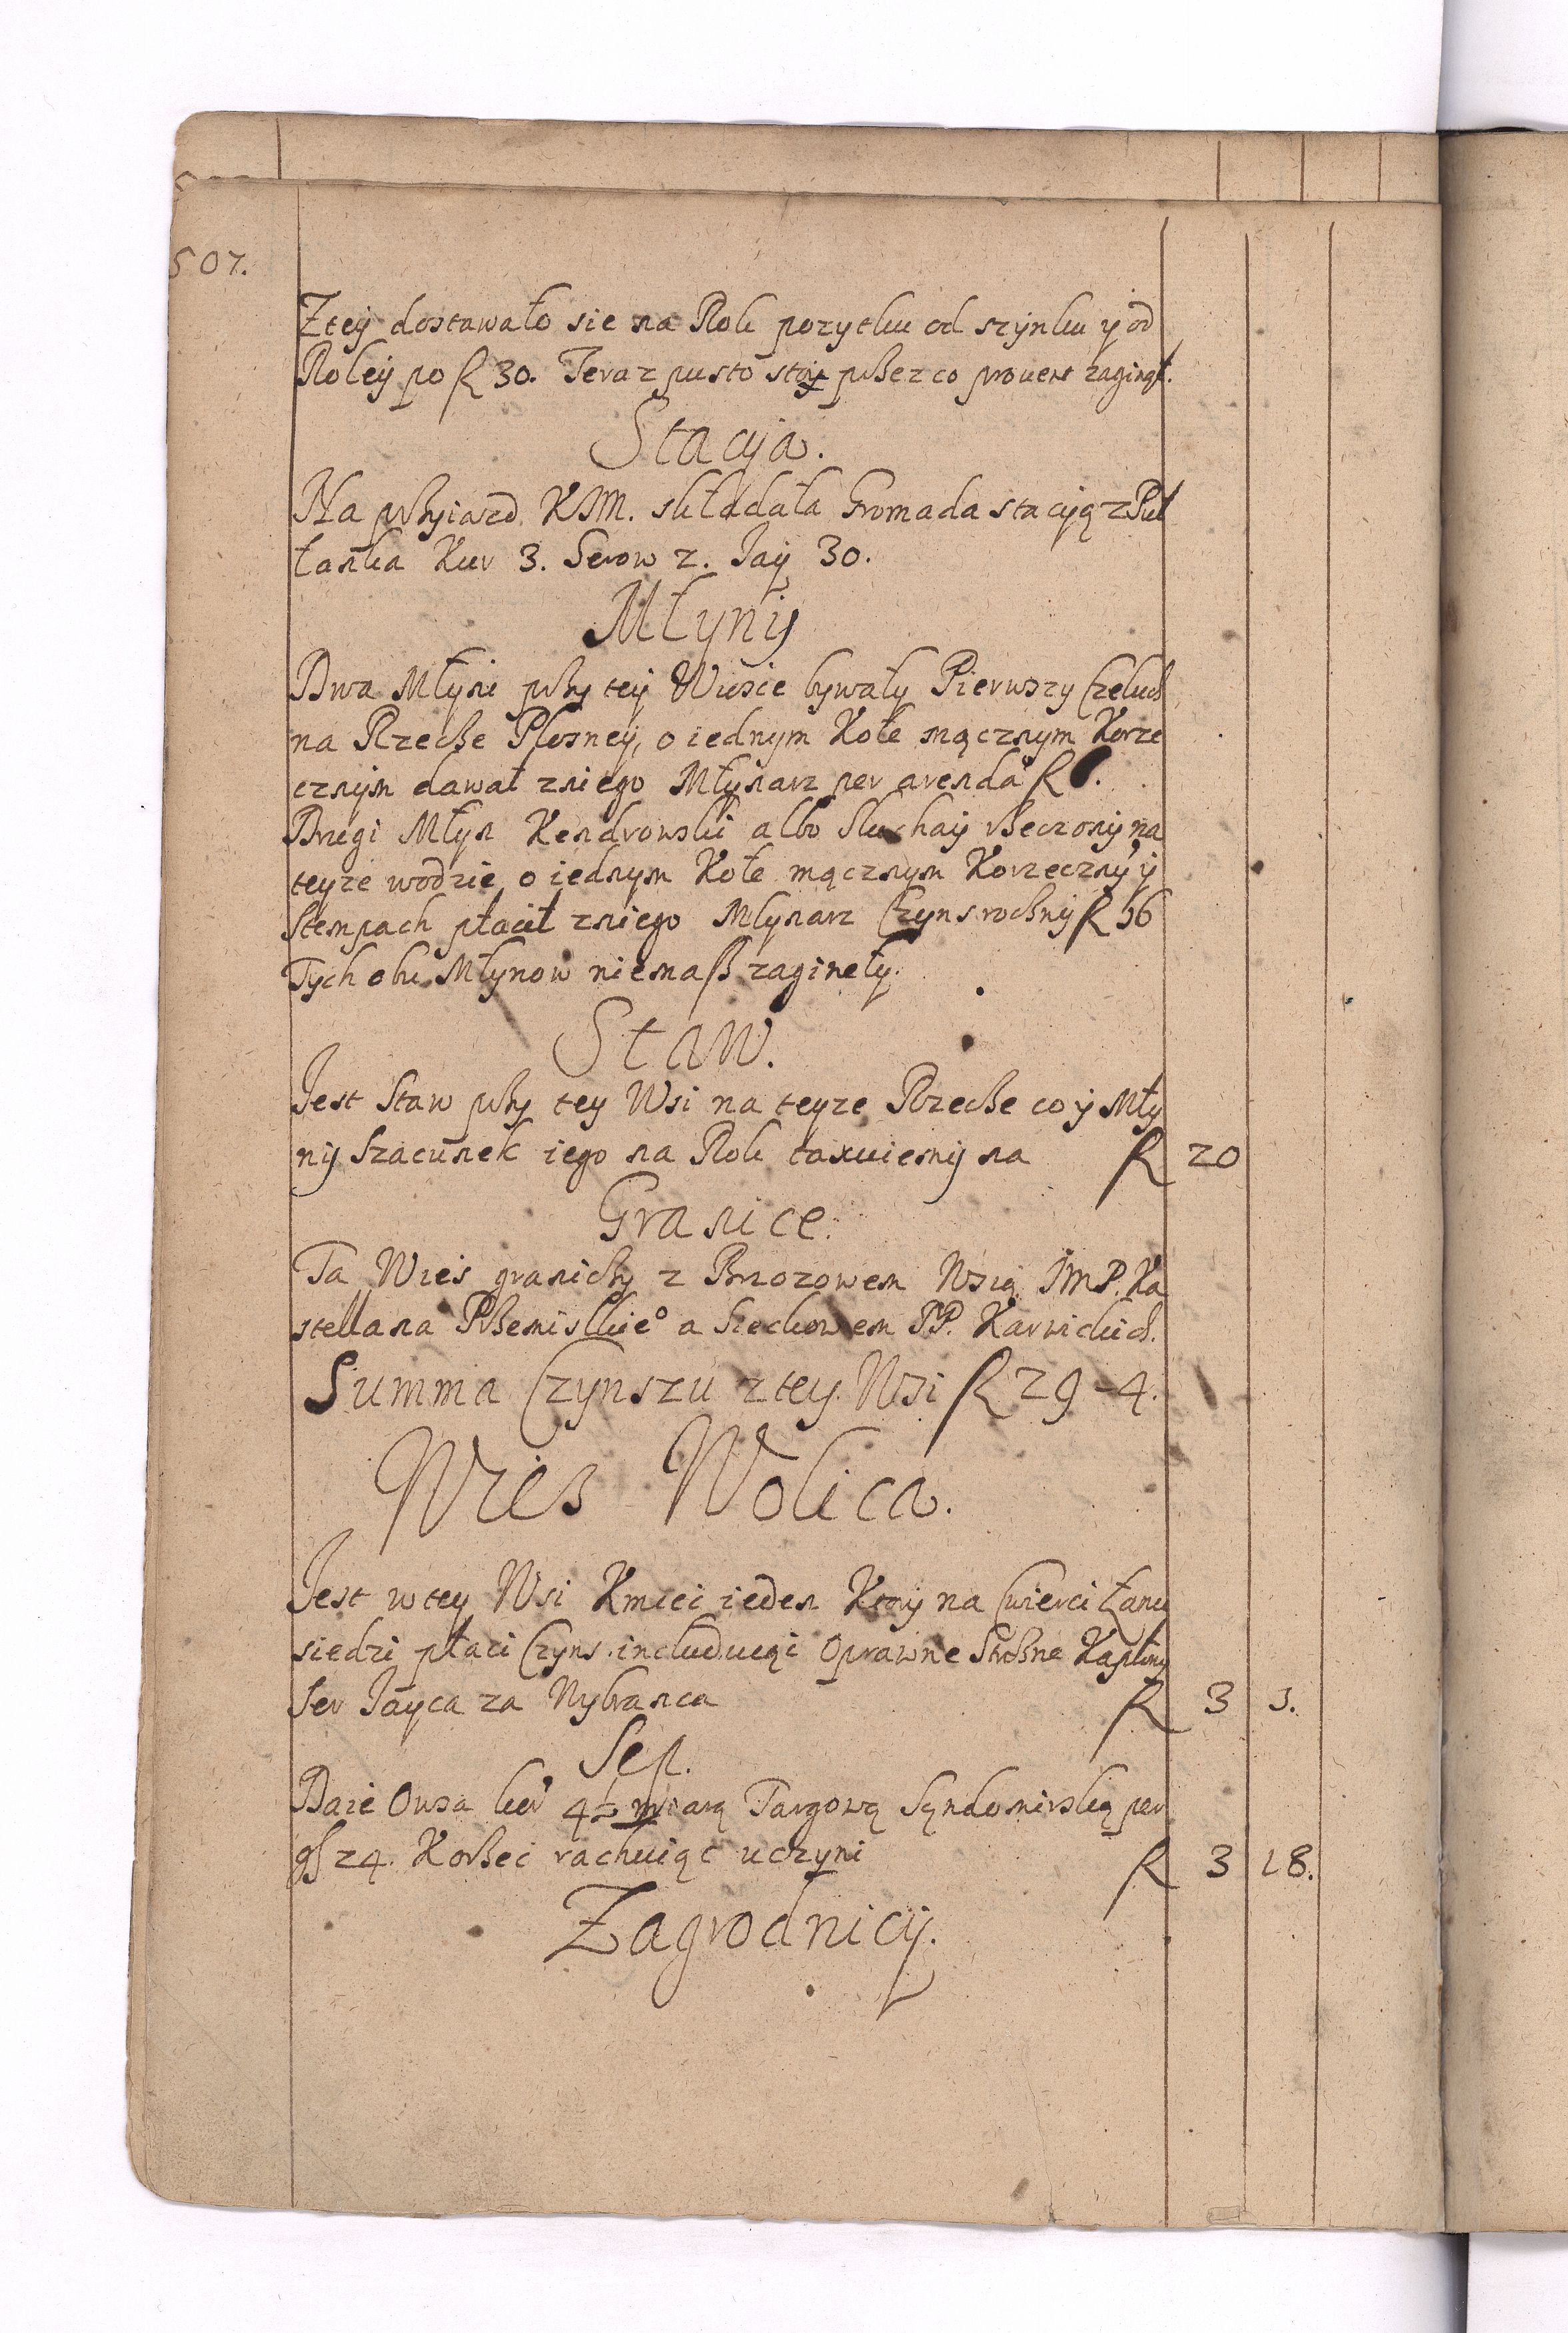 507.
Z tey dostawało sie na Rok pozytku od szynku y od
Roley po fl 30. Teraz pusto stoy przez co prouent zaginął.
Stacyja.
Na przyiazd KJM. składała Gromada stacyią z Puł
łanka Kur 3. Serow 2. Jay 30.
Młyny
Dwa Młyni przy tey Wiosce bywały Pierwszy
na Rzecze o iednym Kole mącznym Korze
cznym dawał z niego Młynarz per arenda fl
Drugi Młyn Kendrowski albo Sluchay rzeczony na
teyze wodzie o iednym Kole mącznym Korzeczny y
Stempach płacił z niego Mlynarz Czyns roczny fl 16
Tych obu Młynow niemasz zagineły.
Staw.
Jest Staw przy tey Wsi na teyze Rzecze co y Mły
ny Szacunek iego na Rok taxuiemy na fl 20
Granice.
Ta Wies graniczy z Brzozowem Wsią JMP. Ka
stellana Przemiskieo a Sieckowem PP. Karwickich.
Summa Czynszu z tey Wsi fl 29-4.
Wies Wolica.
Jest w tey Wsi Kmieci ieden Ktory na Cwierci Łanu
siedzi płaci Czyns includuiąc Oprawne Strozne Kapłony
Ser Jayca za Wybranca fl 3 3.
Sep.
Daie Owsa kor 4½ miarą Targową Sęndomirską per
gß 24. Korzec rachuiąc uczyni fl 3 18.
Zagrodnicy.